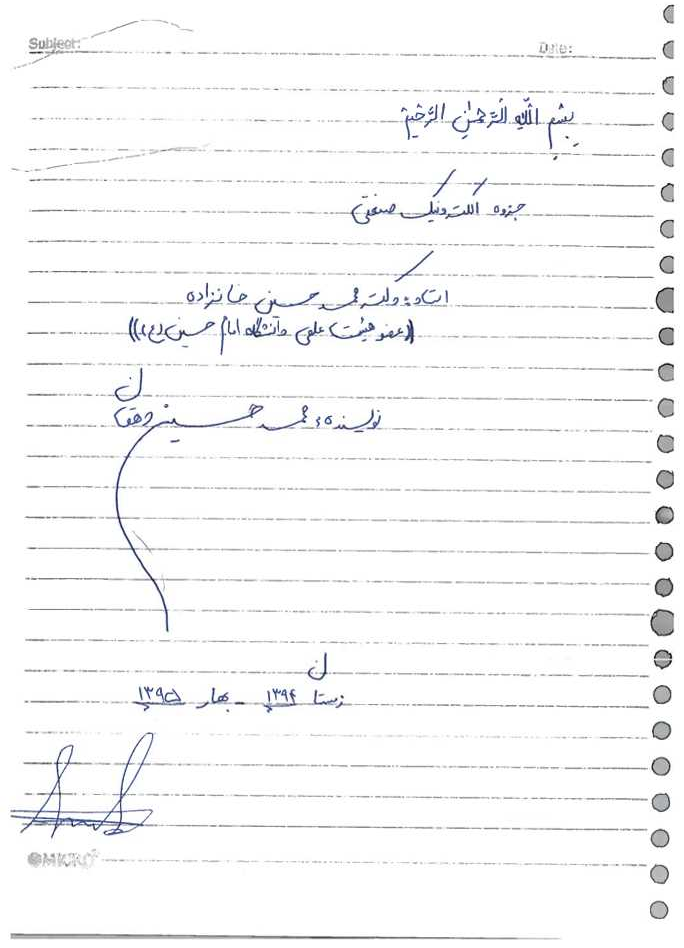 Subject:
Date:
بِسْمِ اللَّهِ الرَّحْمٰنِ الرَّحِیمِ
جزوه الکترونیک صنعتی
استاد: دکتر محمد حسین خانزاده
((عضو هیئت علمی دانشگاه امام حسین (ع)))
نویسنده: محمد حسین دهقان
زمستان ۱۳۹۴ - بهار ۱۳۹۵
MICRO